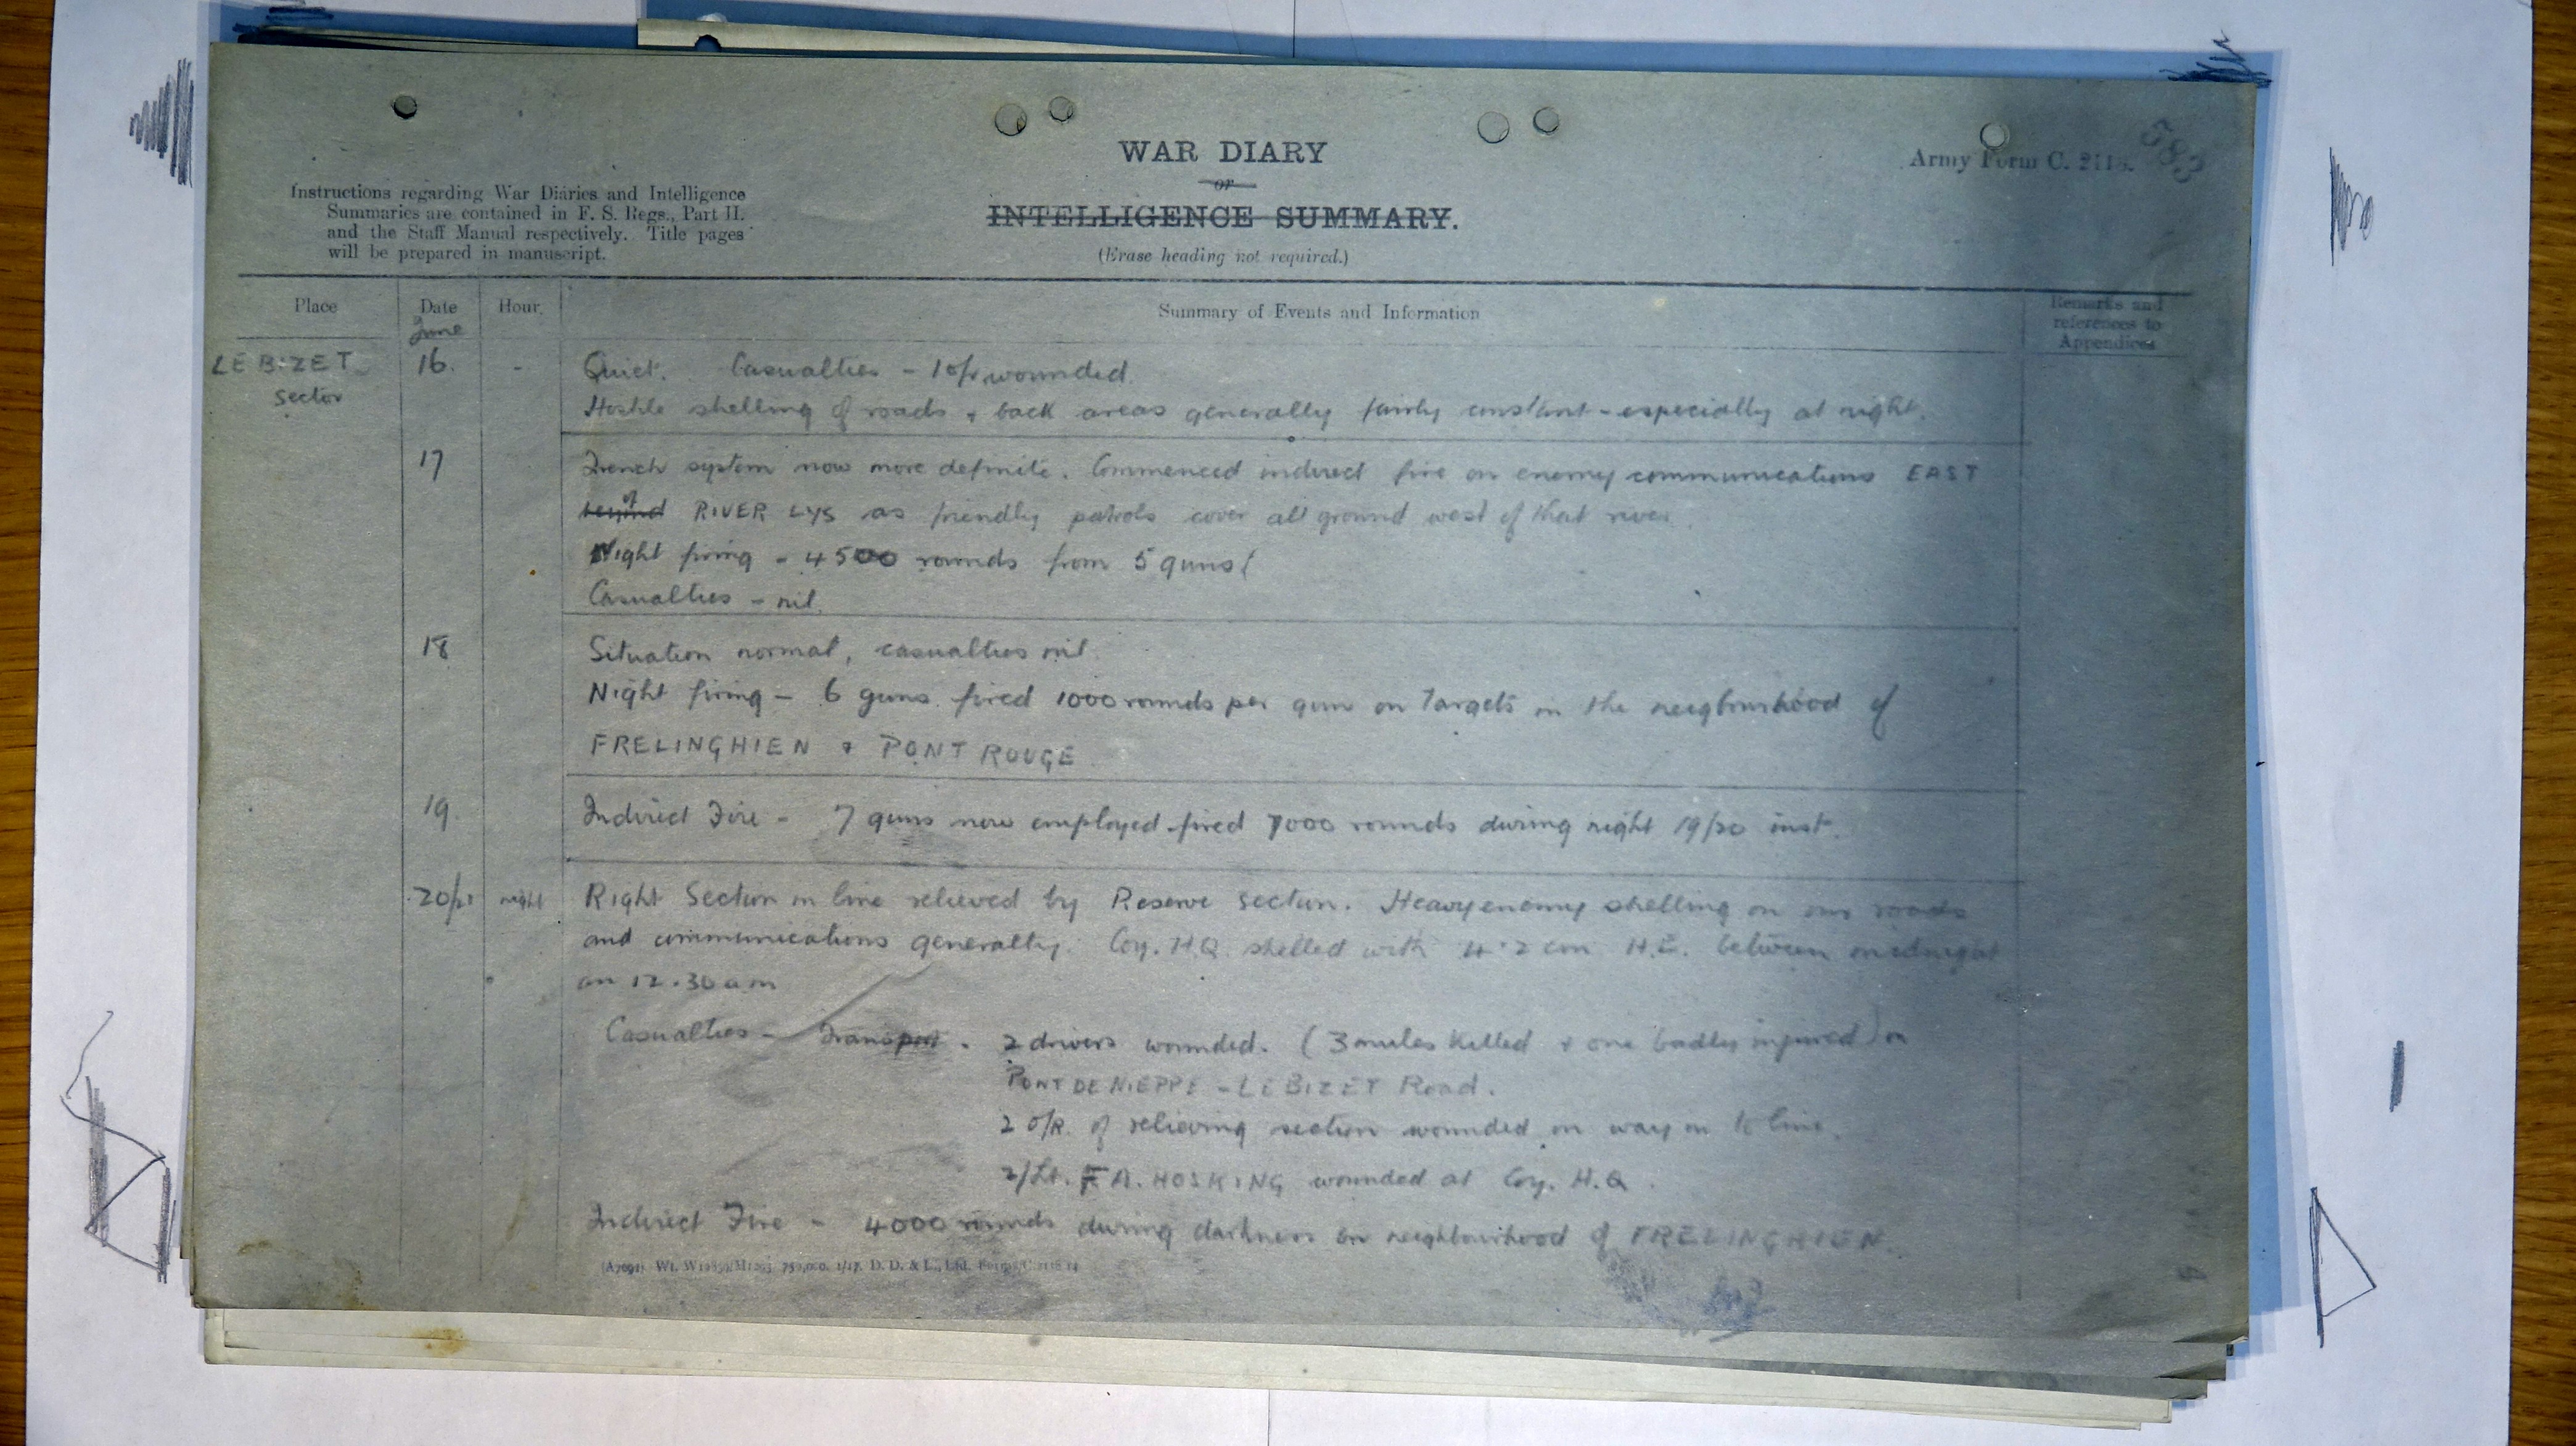 WAR DIARY
or
INTELLIGENCE SUMMARY.
(Erase heading not required.)
Army Form C. 2118.
583
Instructions regarding War Diaries and Intelligence
Summaries are contained in F. S. Regs., Part II.
and the Staff Manual respectively. Title pages
will be prepared in manuscript.
Place Date Hour Summary of Events and Information Remarks and references to Appendices
June
LE BIZET sector 16. - Quiet. Casualties - 1 o/r wounded.
Hostile shelling of roads & back areas generally fairly constant - especially at night.
17 Trench system now more definite. Commenced indirect fire on enemy communications EAST
beyond of RIVER LYS as friendly patrols cover all ground west of that river.
Night firing - 4500 rounds from 5 guns (
Casualties - nil.
18 Situation normal, casualties nil.
Night firing - 6 guns fired 1000 rounds per gun on Targets in the neigbourhood of
FRELINGHIEN & PONT ROUGE
19. Indirect Fire - 7 guns now employed fired 7000 rounds during night 19/20 inst.
20/21 night Right Section in line relieved by Reserve section. Heavy enemy shelling on our roads
and communications generally. Coy. H.Q. shelled with 4.2 cm H.E. between midnight
on 12.30 am
Casualties - Transport - 2 drivers wounded. (3 mules killed & one badly injured) on
PONT DE NIEPPE - LE BIZET Road.
2 O/R. of relieving section wounded on way in to line.
2/Lt. F A. HOSKING wounded at Coy. H.Q.
Indirect Fire - 4000 rounds during darkness on neighbourhood of FRELINGHIEN.